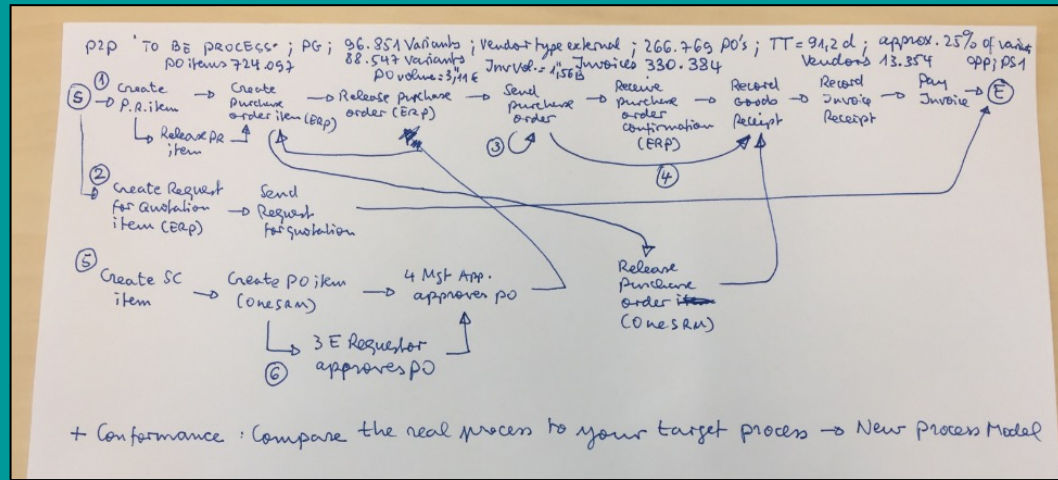 P2P "TO BE PROCESS" ; PG ; 96.851 Variants ; Vendor type external ; 266.769 PO's ; TT = 91,2 d ; approx. 25% of
PO items 724.097 88.547 variants Invoices 330.384 Vendors 13.354 OPP; PS1
PO volume = 3,11 € Inv Vol. = 1,56B
S ① Create P.R. item → Create purchase order item (ERP) → Release purchase order (ERP) → Send purchase order → Receive purchase order confirmation (ERP) → Record Goods Receipt → Record Invoice Receipt → Pay Invoice → E
Release PR item
③
④
② Create Request for Quotation item (ERP) → Send Request for quotation
Release purchase order (OneSRM)
⑤ Create SC item → Create PO item (OneSRM) → 4 Mgt App. approves PO
⑥ 3 E Requestor approves PO
+ Conformance : Compare the real process to your target process → New Process Model